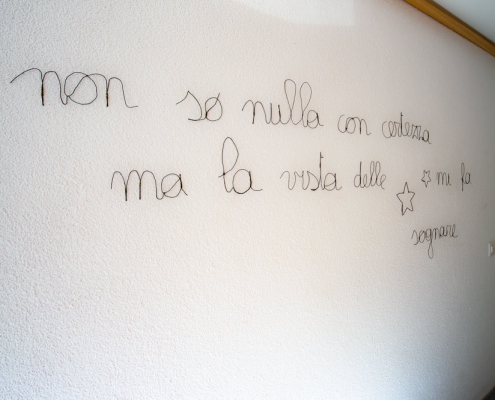 non so nulla con certezza
ma la vista delle ☆ ☆ mi fa
sognare